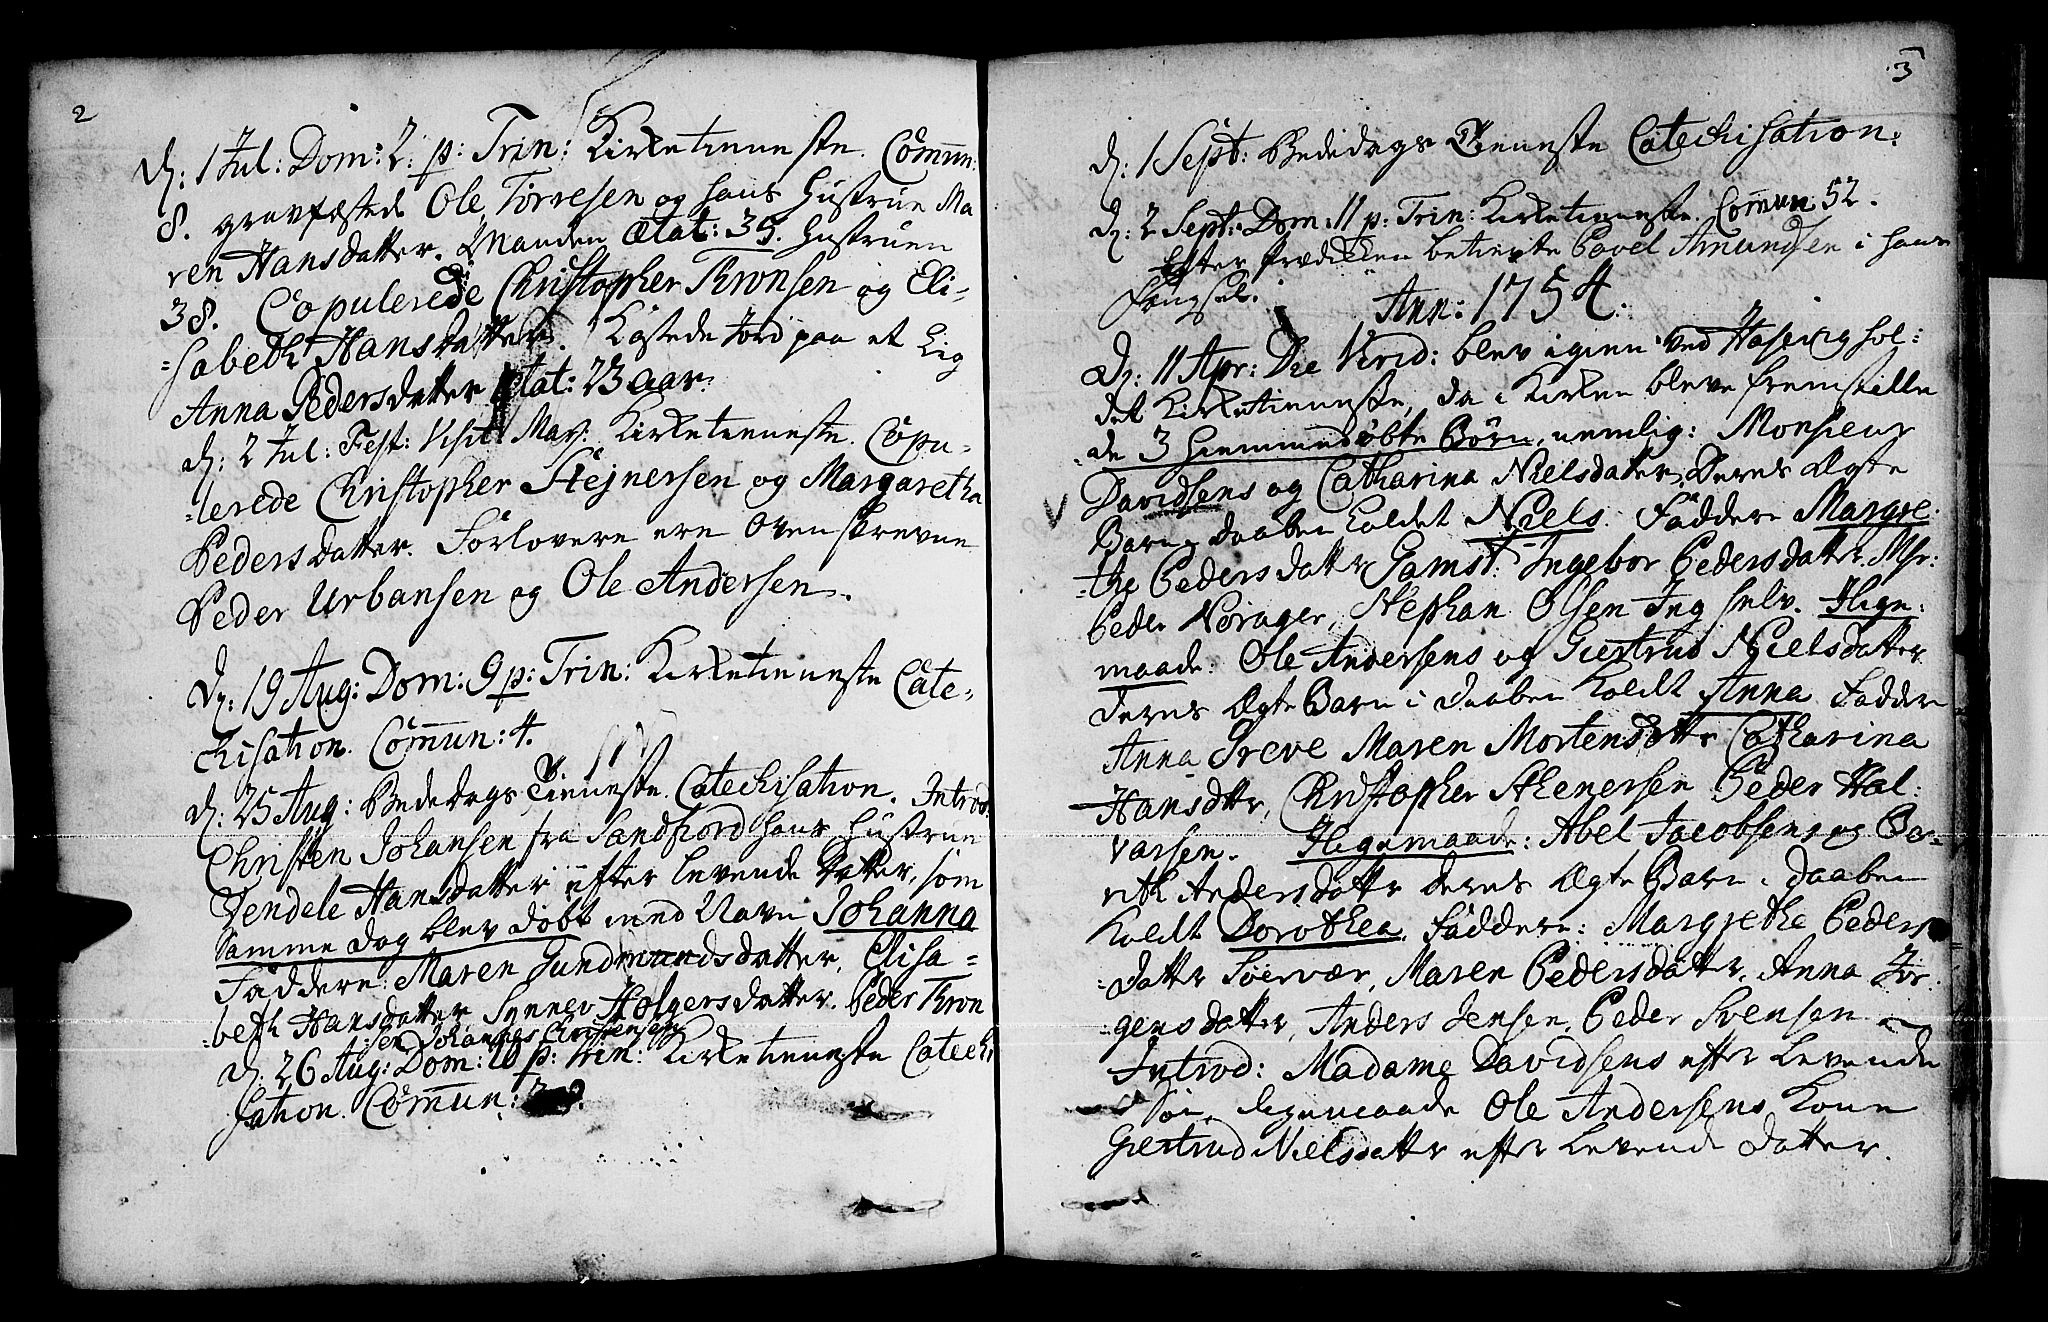 2
D: 1 Jul: Dom: 2. p: Trin: Kirketieneste. Comun:
8. gravfæstede Ole Torresen og hans Hustrue Ma
ren Hansdatter. Manden Ætat: 35. Hustruen
38. Copulerede Christopher Thronsen og Eli-
-sabeth Hansdatter. Kastede Jord paa et Lig
Anna Pedersdatter Ætat: 23 aar.
D: 2 Jul: Fest: Visit: Mar: Kirketieneste. Copu-
-lerede Christopher Stejnersen og Margaretha
Pedersdatter. Forlovere ere Ovenskrevne
Peder Urbansen og Ole Andersen.
D: 19 Aug: Dom: 9 p: Trin: Kirketieneste Cate-
chisation. Comun: 4.
D: 25 Aug: Bededags Tieneste. Catechisation. Introd:
Christen Johansen fra Sandfiord hans Hustrue
Vendele Hansdatter efter levende Datter, som
Samme dag blev døbt med Navn Johanna
Faddere: Maren Gundmundsdatter, Elisa-
-beth Hansdatter Synnev Holgersdatter. Peder Thron
-sen Johannes Christensen
D: 26 Aug: Dom: 10 p: Trin: Kirketieneste Catechi
sation. Comun:
3
D: 1 Sept: Bededags Tieneste Catechisation:
D: 2 Sept: Dom: 11 p: Trin: Kirketieneste. Comun: 52.
Efter Prædiken betiente Povel Amundsen i hans
Fængsel.
Ann: 1754.
D: 11 Apr: Die Virid: blev igien ved Hasvig hol:
det Kirketieneste, da i Kirken bleve fremstille
-de 3 hiemmedøbte Børn, nemlig: Monsieur
Davidsens og Catharina Nielsdatter, Deres Ægte
V
Barn i daaben kaldet Niels. Faddere Margre
-the Pedersdatter Gamst: Ingebor Pedersdatter Mr:
Peder Norager, Stephan Olsen Jeg selv. Ligе:
maade: Ole Andersens og Giertrud Nielsdatter
deres Ægte Barn i daaben kaldt Anna Faddere
Anna Greve Maren Mortensdatter Catharina
Hansdatter, Christopher Stenersen Peder Hal:
varsen. Ligemaade: Abel Jacobsens og Be-
rith Andersdatter deres Ægte Barn i daaben
kaldt Dorothea. Faddere: Margrethe Peders
datter Soervær, Maren Pedersdatter, Anna Jør
gensdatter, Anders Jensen, Peder Svensen
Introd: Madame Davidsens efter levende
Søn, ligemaade Ole Andersens Kone
Giertrud Nielsdatter efter levende Datter.